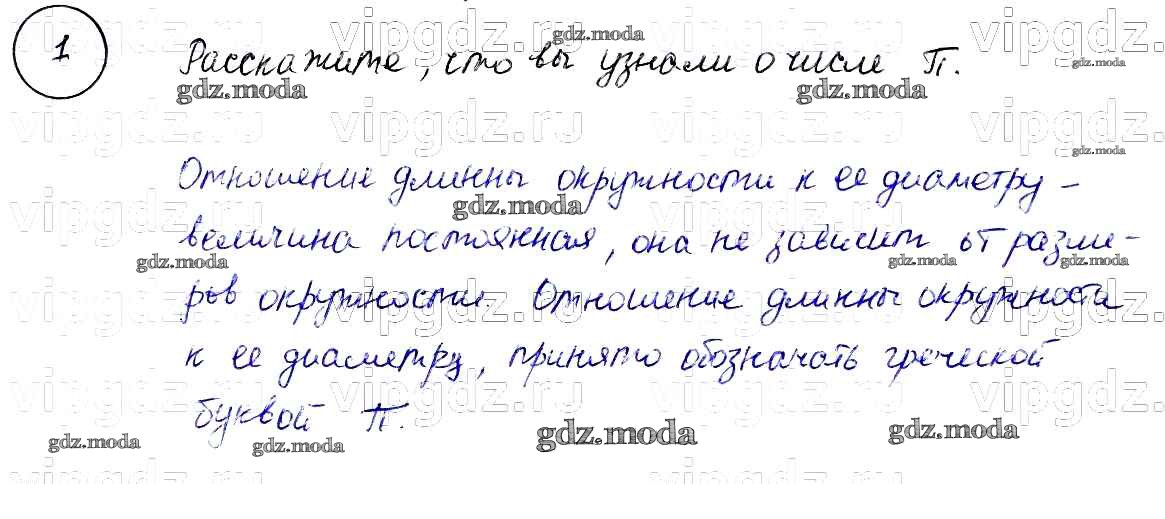 1
Расскажите, что вы узнали о числе π.
Отношение длинны окружности к ее диаметру –
величина постоянная, она не зависит от разме-
ров окружности. Отношение длинны окружности
к ее диаметру, принято обозначать греческой
буквой π.
gdz.moda
vipgdz.ru